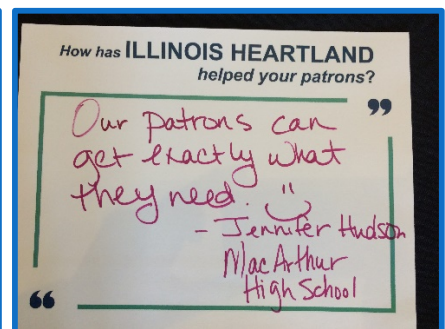 How has ILLINOIS HEARTLAND
helped your patrons?
”
Our patrons can
get exactly what
they need. :)
- Jennifer Hudson
MacArthur
High School
“